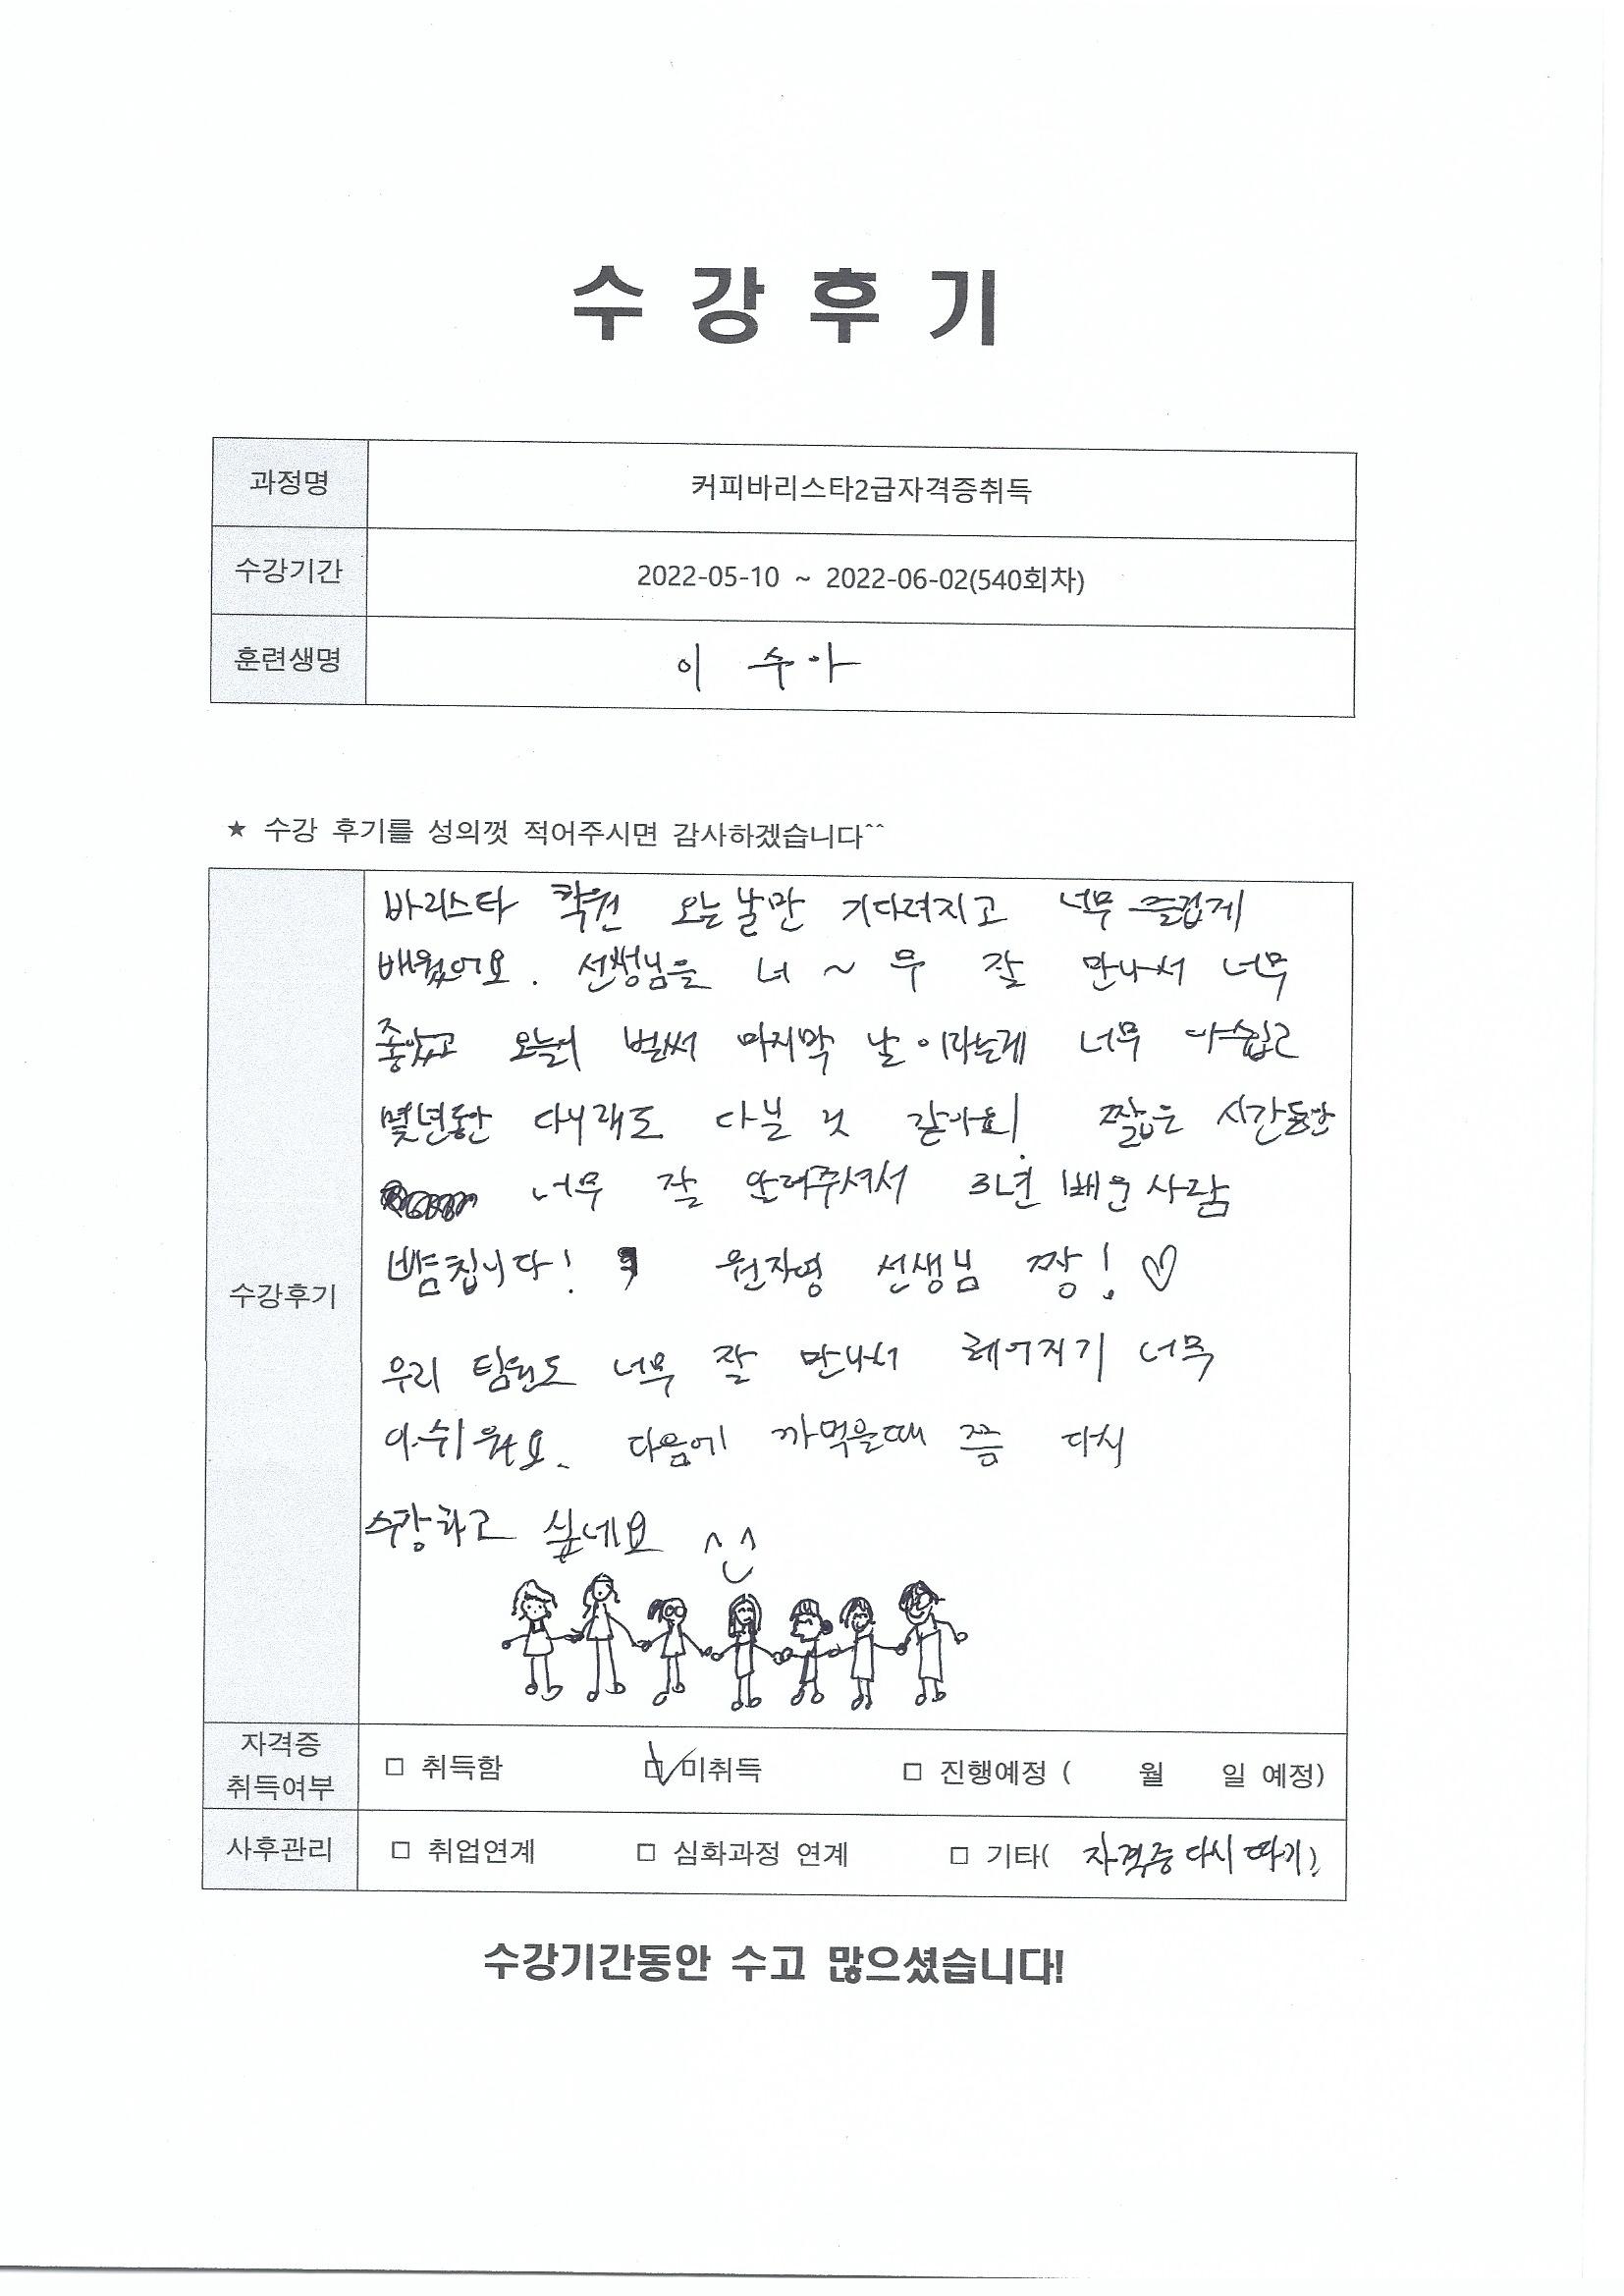 수강후기
과정명 커피바리스타2급자격증취득
수강기간 2022-05-10 ~ 2022-06-02(540회차)
훈련생명 이 수아
★ 수강 후기를 성의껏 적어주시면 감사하겠습니다^^
바리스타 학원 오는날만 기다려지고 너무 즐겁게
배웠어요. 선생님을 너~무 잘 만나서 너무
좋았고 오늘이 벌써 마지막 날이라는게 너무 아쉽고
몇년동안 다니래도 다닐 것 같아요! 짧은 시간동안
너무 잘 알려주셔서 3년 배운사람
뺨칩니다! 원자영 선생님 짱! ♡
수강후기
우리 팀원도 너무 잘 만나서 헤어지기 너무
아쉬워요. 다음에 까먹을때 쯤 다시
수강하고 싶네요 ^^
자격증
취득여부 □ 취득함 □ 미취득 □ 진행예정 ( 월 일 예정)
사후관리 □ 취업연계 □ 심화과정 연계 □ 기타( 자격증 다시 따기)
수강기간동안 수고 많으셨습니다!